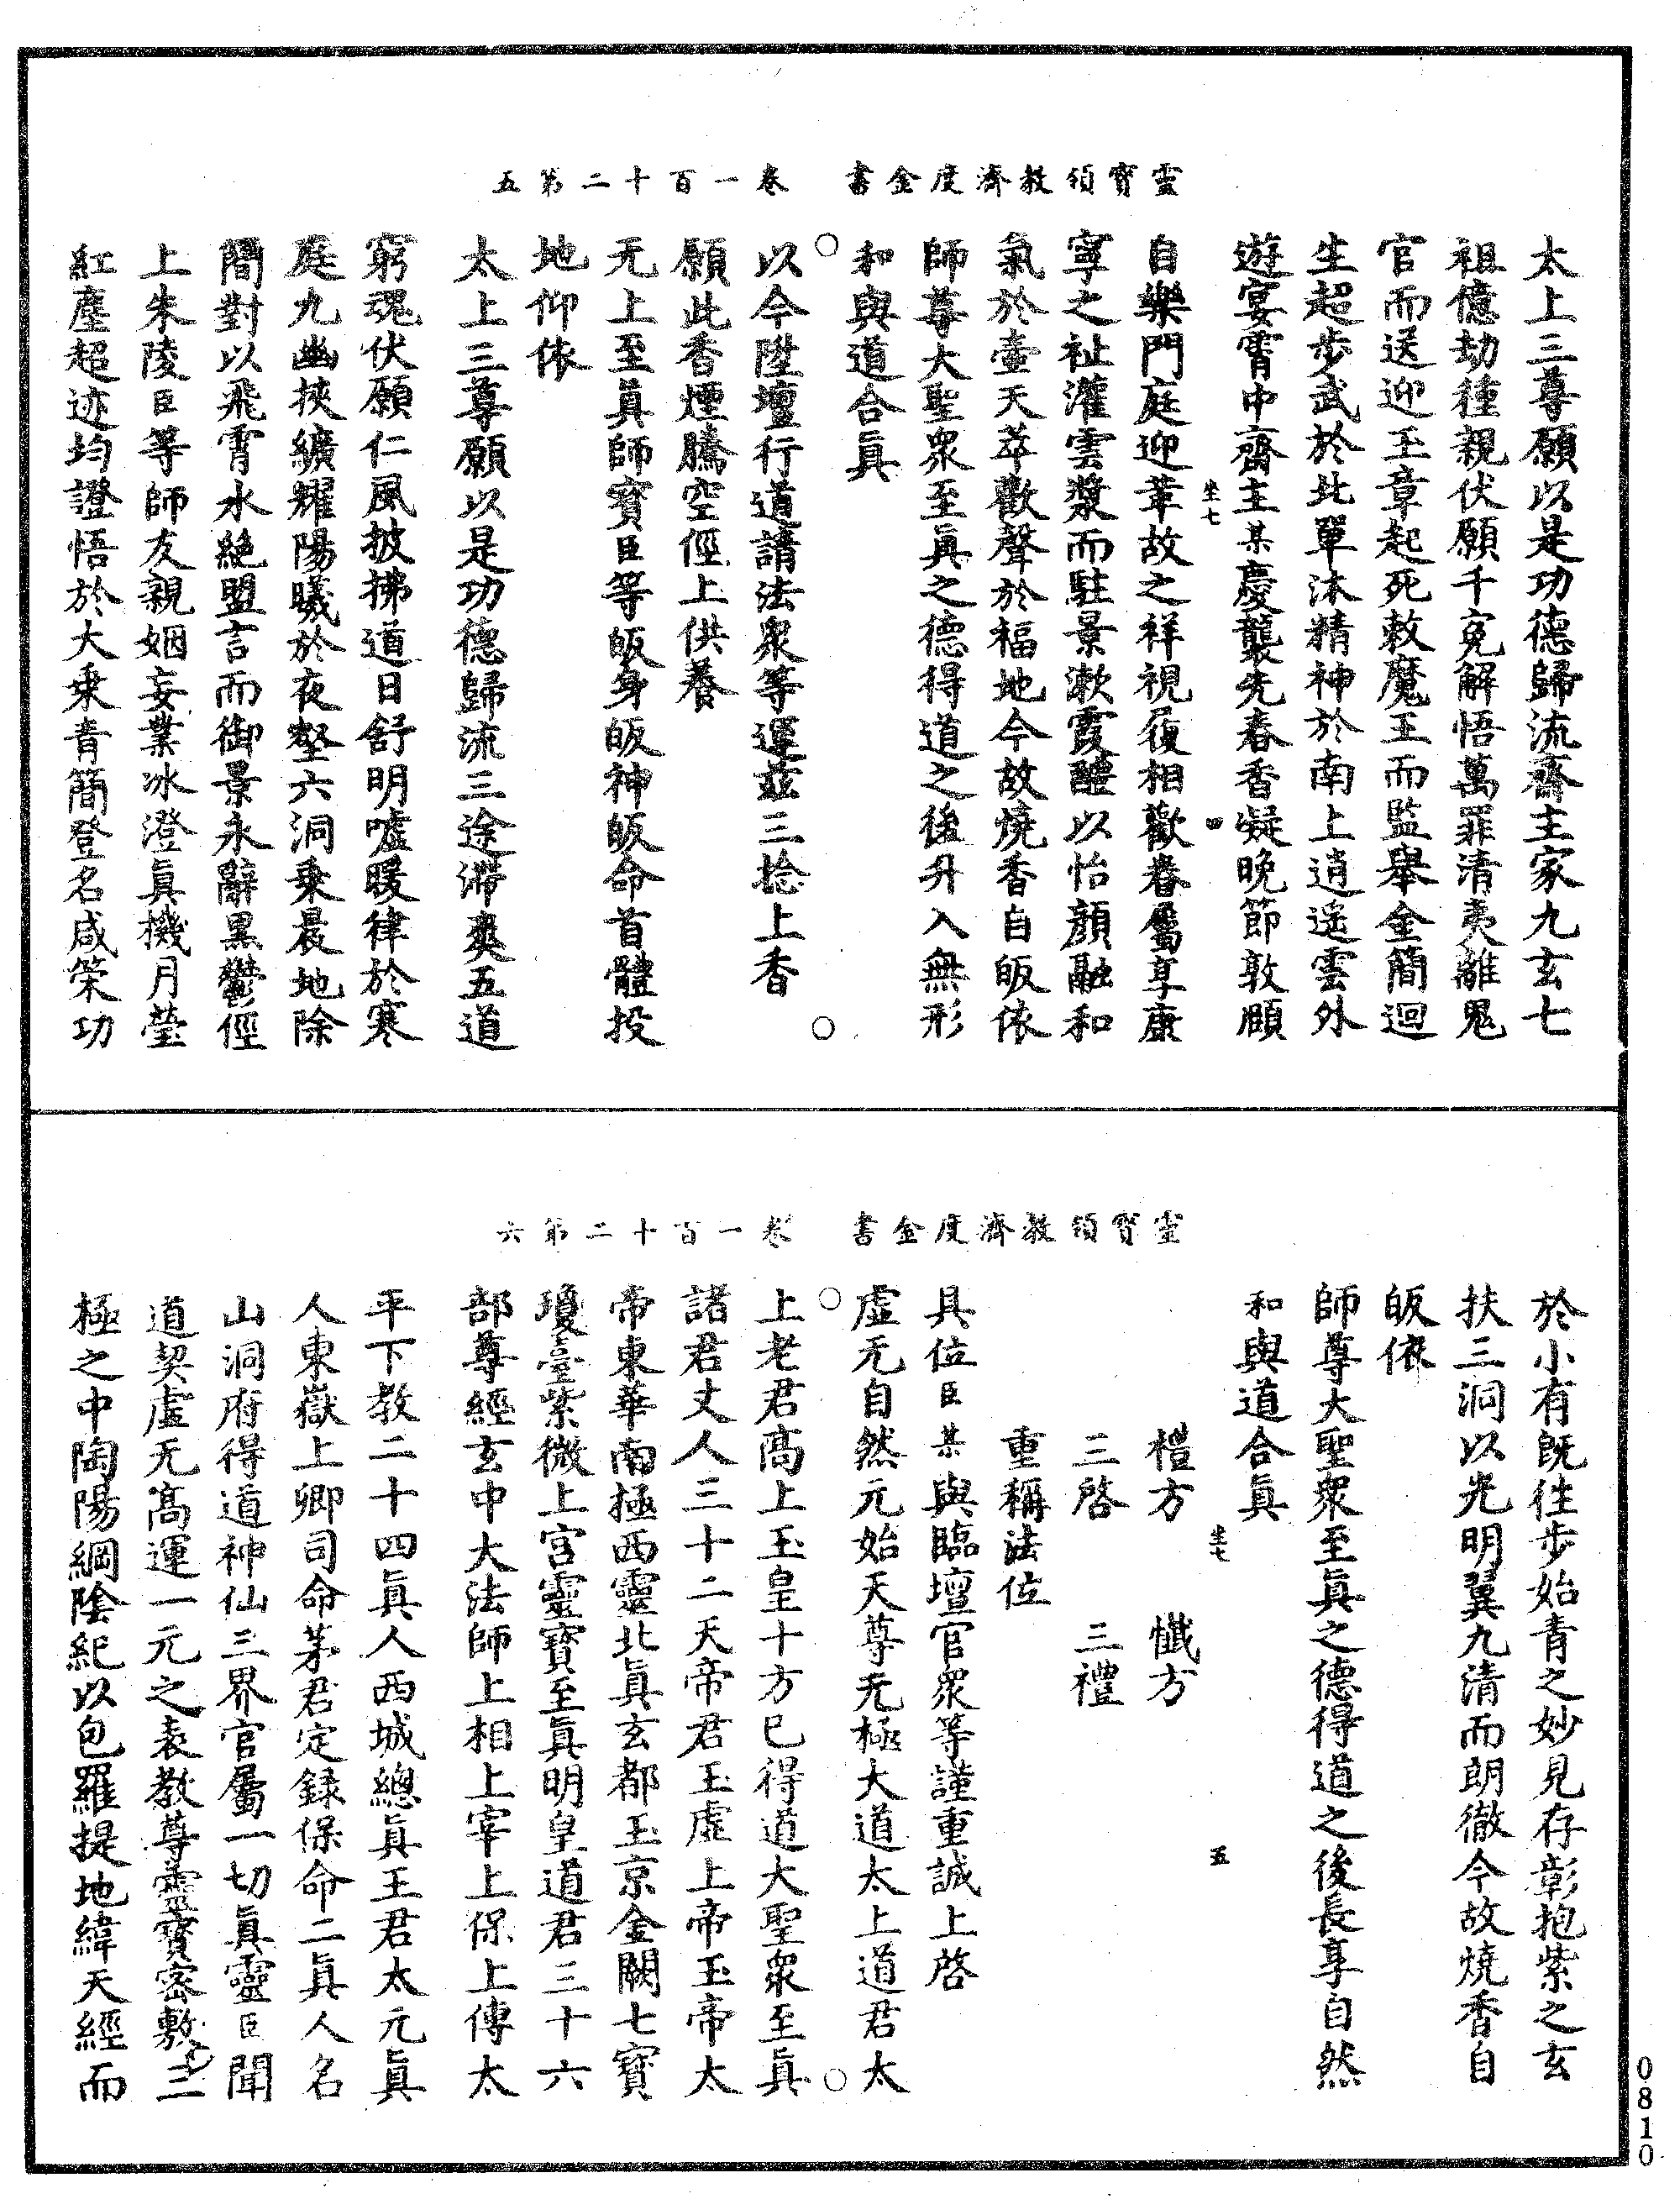 靈寶領教濟度金書　卷一百十二第五
太上三尊願以是功德歸流齋主家九玄七
祖億劫種親伏願千冤解悟萬罪清夷離鬼
官而送迎玉章起死敕魔王而監舉金簡迴
生超步武於北單沐精神於南上逍遙雲外
遊宴霄中齋主某慶襲先春香凝晚節敦頤
坐七　四
自樂門庭迎葦故之祥視履相歡眷屬享康
寧之祉灌雲漿而駐景漱霞醴以怡顏融和
氣於壼天萃歡聲於福地今故燒香自皈依
師尊大聖眾至真之德得道之後升入無形
和與道合真
以今陞壇行道請法眾等運茲三捻上香
願此香煙騰空俓上供養
无上至真師寶臣等皈身皈神皈命首體投
地仰依
太上三尊願以是功德歸流三途滯爽五道
窮魂伏願仁風披拂道日舒明噓暖律於寒
庭九幽挾纊耀陽曦於夜壑六洞乘晨地除
簡對以飛霄水絕盟言而御景永辭黑鬱俓
上朱陵臣等師友親姻妄業冰澄真機月瑩
紅塵超迹均證悟於大乘青簡登名咸策功
靈寶領教濟度金書　卷一百十二第六
於小有既往步始青之妙見存彰抱紫之玄
扶三洞以光明翼九清而朗徹今故燒香自
皈依
師尊大聖眾至真之德得道之後長享自然
和與道合真
坐七　五
禮方　懺方
三啓　三禮
重稱法位
具位臣某與臨壇官眾等謹重誠上啓
虛无自然元始天尊无極大道太上道君太
上老君高上玉皇十方已得道大聖眾至真
諸君丈人三十二天帝君玉虛上帝玉帝太
帝東華南極西靈北真玄都玉京金闕七寶
瓊臺紫微上宮靈寶至真明皇道君三十六
部尊經玄中大法師上相上宰上保上傅太
平下教二十四真人西城總真王君太元真
人東嶽上卿司命茅君定録保命二真人名
山洞府得道神仙三界官屬一切真靈臣聞
道契虛无高運一元之表教尊靈寶密敷二
極之中陶陽綱陰紀以包羅提地緯天經而
0810